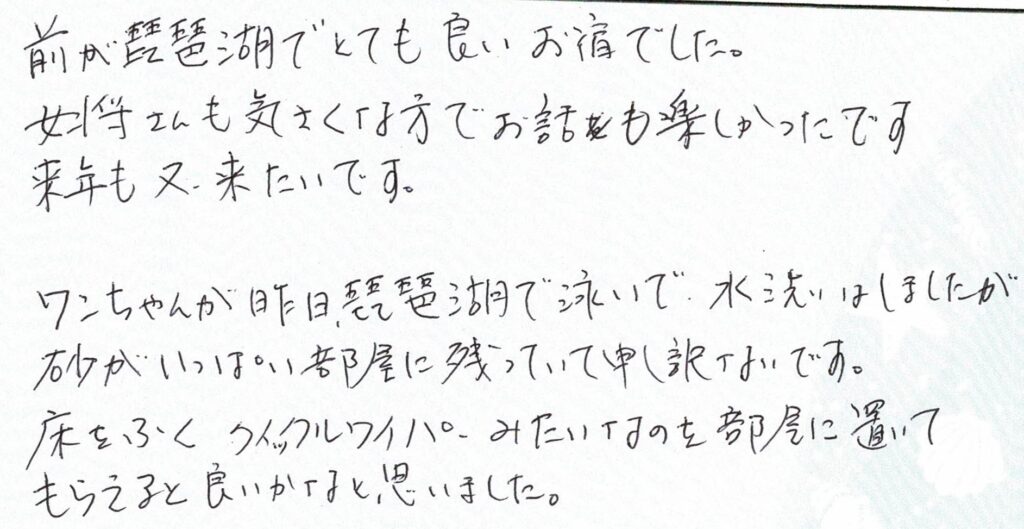 前が琵琶湖でとても良いお宿でした。
女将さんも気さくな方でお話も楽しかったです
来年も又、来たいです。
ワンちゃんが昨日、琵琶湖で泳いで、水洗いはしましたが
砂がいっぱい部屋に残っていて申し訳ないです。
床をふくクイックルワイパーみたいなのを部屋に置いて
もらえると良いかなと、思いました。